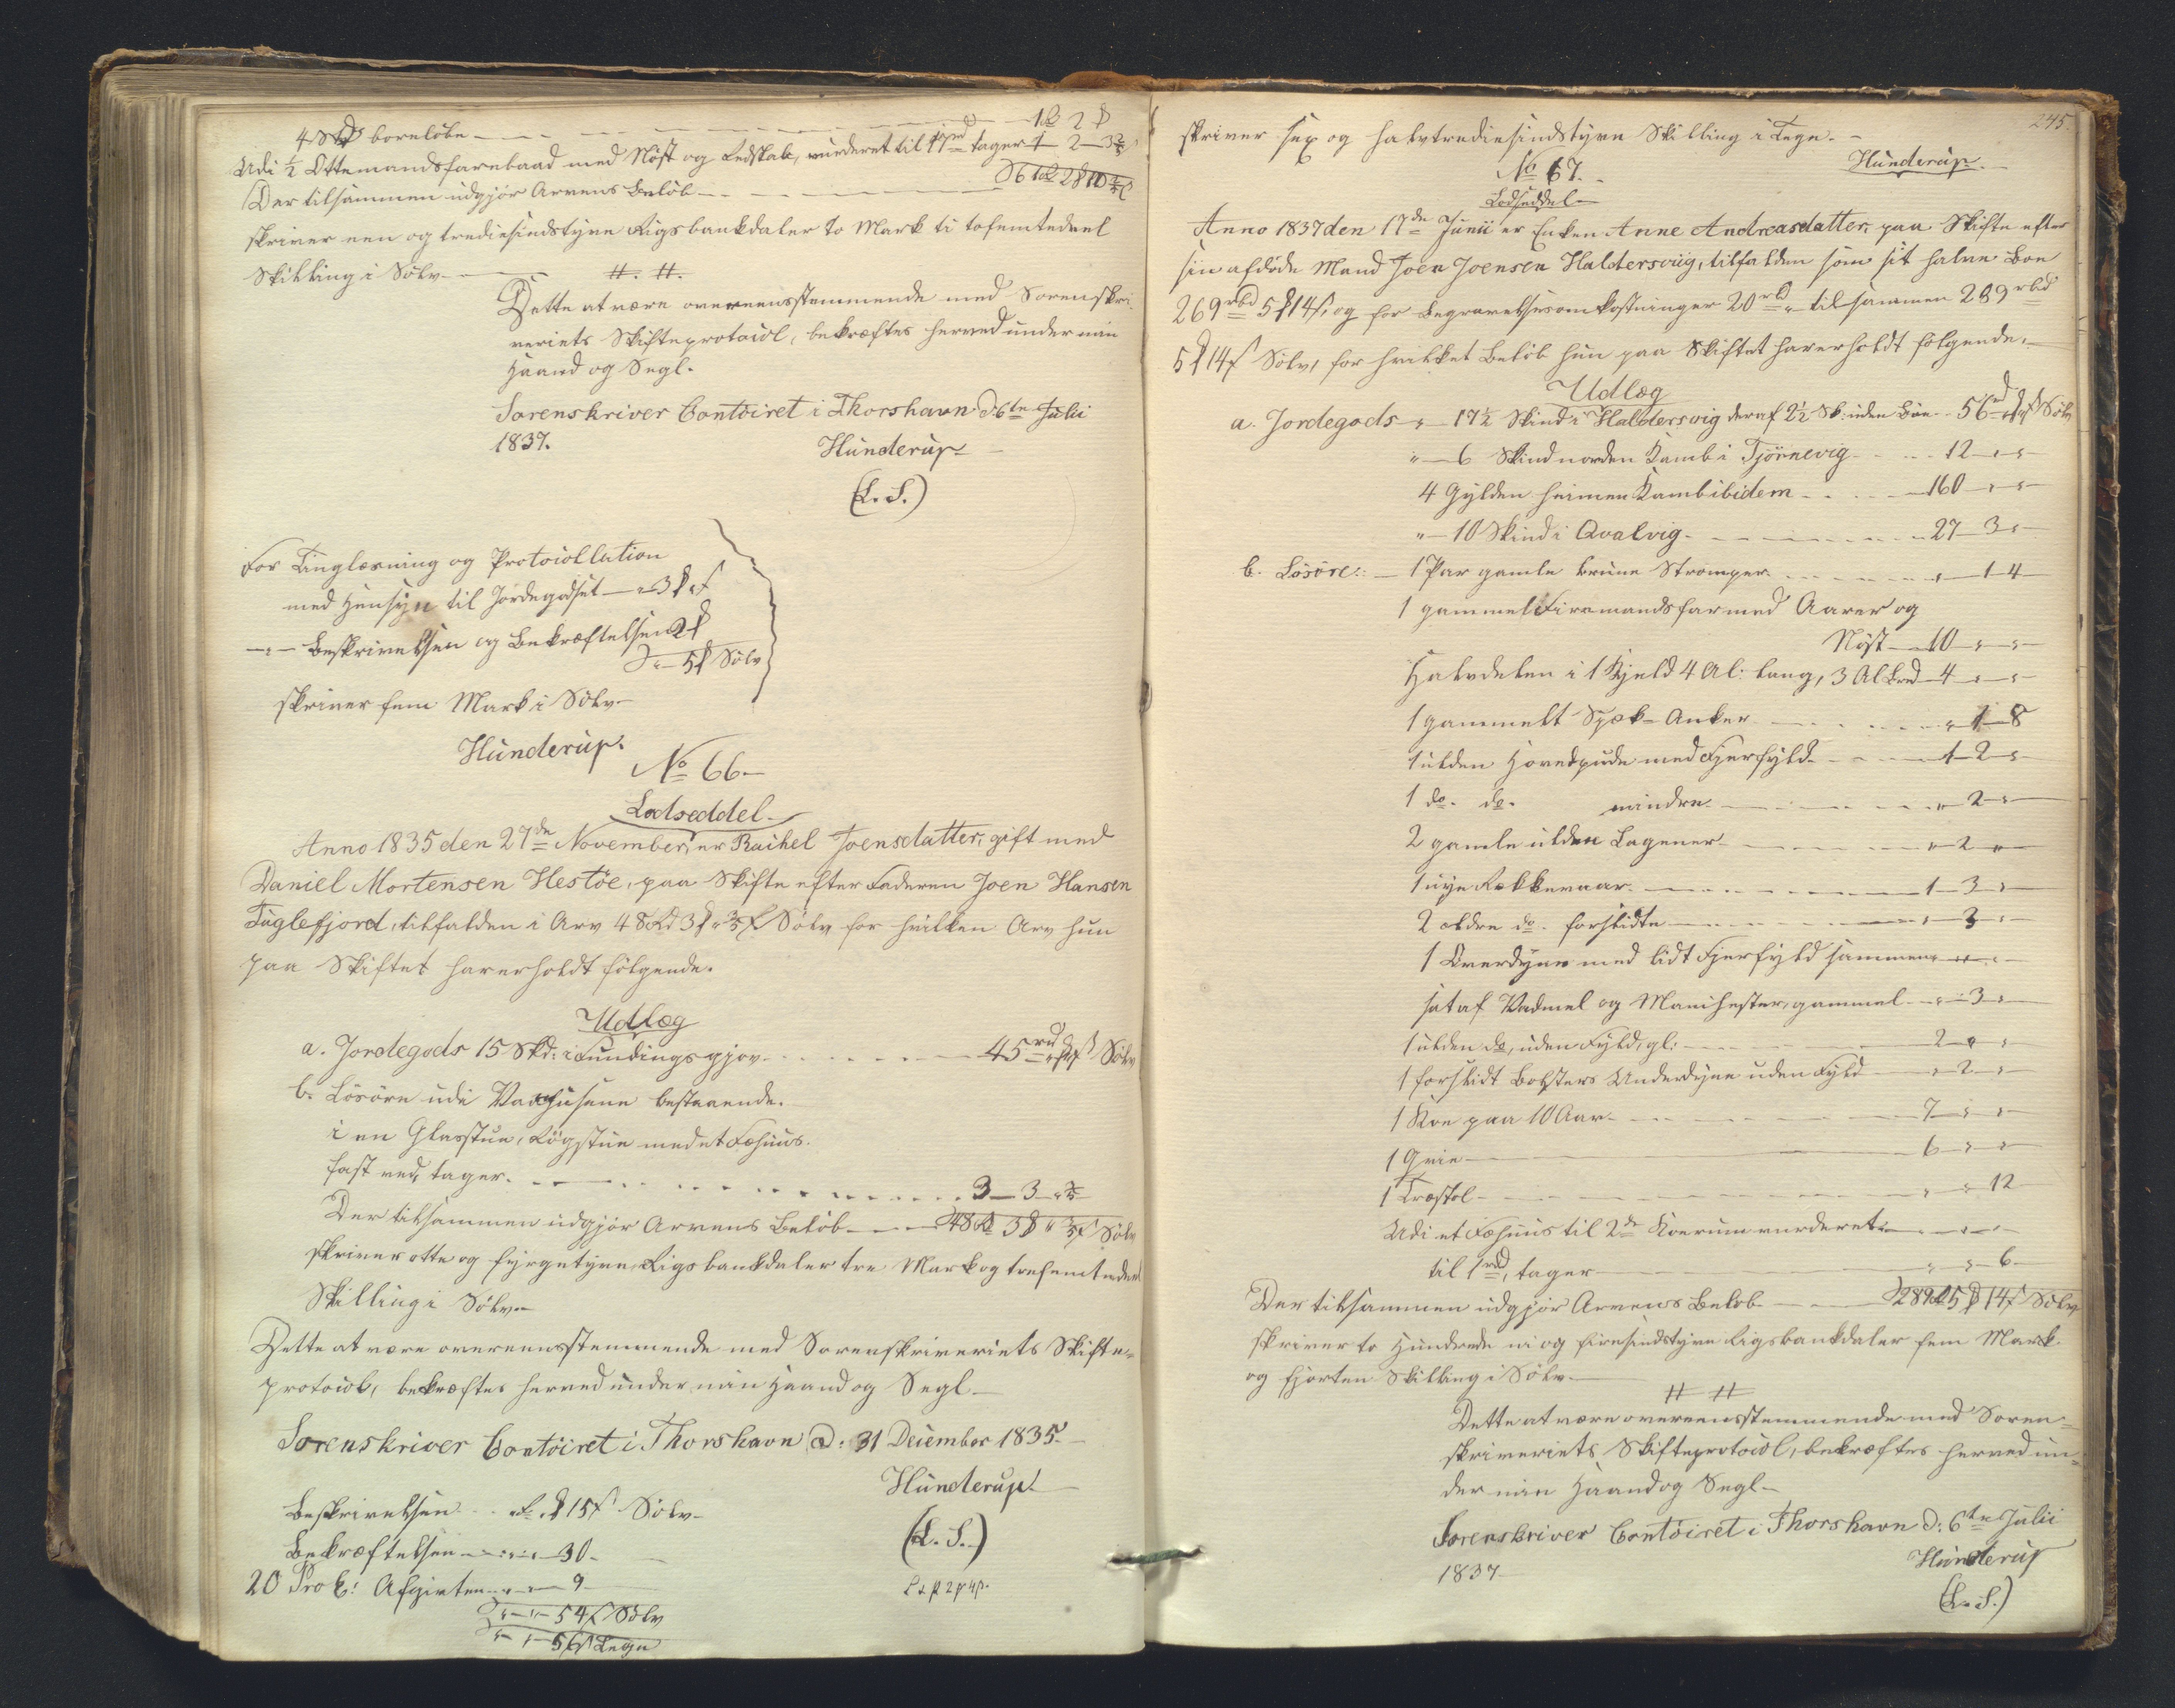 4 Skd boreløbe 1 2
Udi ½ Ottemandsfarebaad med Nøst og Redskab, vurderet til 17rd tager 1 2 3⅖
Der tilsammen udgjør Arvens Beløb 61 2 10⅖
skriver een og trediesindstyve Rigsbankdaler to Mark ti tofemtedeel
Skilling i Sølv.
#. #.
Dette at være overeensstemmende med Sorenskri-
veriets Skifteprotocol, bekræftes herved under min
Haand og Segl.
Sorenskriver Contoiret i Thorshavn d. 6te Julii
1837. Hunderup
(L. S.)
For Tinglæsning og Protocollation
med Hensyn til Jordegodset 3
Beskrivelsen og Bekræftelsen 2
5 Sølv
skriver fem Mark i Sølv
Hunderup.
No 66
Lodseddel.
Anno 1835 den 27de November, er Rachel Joensdatter, gift med
Daniel Mortensen Hestøe, paa Skifte efter Faderen Joen Hansen
Fuglefjord, tilfalden i Arv 48 rd 3 Sølv for hvilken Arv hun
paa Skiftet har erholdt følgende.
Udlæg
a. Jordegods 15 Skd: i Fundingsgjov 45 rd Sølv
b. Løsøre udi Vaaghusene bestaaende.
i en Glasstue, Røgstue med et Fæhuus.
fast ved, tager 3 3
Der tilsammen udgjør Arvens Beløb 48 3 Sølv
skriver otte og fyrgetyve Rigsbankdaler tre Mark og trefemtedeel
Skilling i Sølv
Dette at være overeensstemmende med Sorenskriveriets Skifte-
protocol, bekræftes herved under min Haand og Segl
Sorenskriver Contoiret i Thorshavn d: 31 December 1835.
Hunderup
Beskrivelsen 15 Sølv
(L. S.)
Bekræftelsen 30
20 Pro C: Afgivten 9
54 Sølv
56 Tegn
245.
skriver sex og halvtrediesindstyve Skilling i Tegn.
Hunderup
No 67.
Lodseddel
Anno 1837 den 17de Junii er Enken Anne Andreasdatter, paa Skifte efter
sin afdøde Mand Joen Joensen Haldersviig, tilfalden som sit halve Boe
269 rbd 5 14, og for Begravelsesomkostninger 20 rbd tilsammen 289 rbd
5 14 Sølv, for hvilket Beløb hun paa Skiftet har erholdt følgende.
Udlæg
a. Jordegods 17½ Skind i Haldersvig deraf 2½ Sk: uden Boe 56 rd Sølv
6 Skind norden Kamb i Tjørnevig 12
4 Gylden heimen Kamb ibidem 160
10 Skind i Qvalvig 27 3
b. Løsøre: 1 Par gamle brune Strømper 1 4
1 gammel Firemandsfar med Aarer og
Nøst 10
Halvdelen i 1 Kjeld 4 Al: lang, 3 Al bred 4
1 gammelt Spæk-Anker 1 8
1 ulden Hovedpude med Fjerfyld 1 2
1 do. do. mindre 2
2 gamle ulden Lagener 2
1 nye Rekkevaar 1 3
2 ældre do. forslidte 3
1 Overdyne med lidt Fjerfyld sammen-
sat af Vadmel og Manchester, gammel 3
1 ulden do, uden Fyld, gl: 2
1 forslidt Bolsters Underdyne uden Fyld 2
1 Koe paa 10 Aar 7
1 Qvie 6
1 Træstol 12
Udi et Fæhuus til 2de Koerum vurderet
til 1 rbd, tager 6
Der tilsammen udgjør Arvens Beløb 289 5 14 Sølv
skriver to Hundrede ni og firesindstyve Rigsbankdaler fem Mark
og fjorten Skilling i Sølv
# #
Dette at være overeensstemmende med Soren-
skriveriets Skifteprotocol, bekræftes herved un-
der min Haand og Segl
Sorenskriver Contoiret i Thorshavn d: 6te Julii
1837 Hunderup
(L. S.)